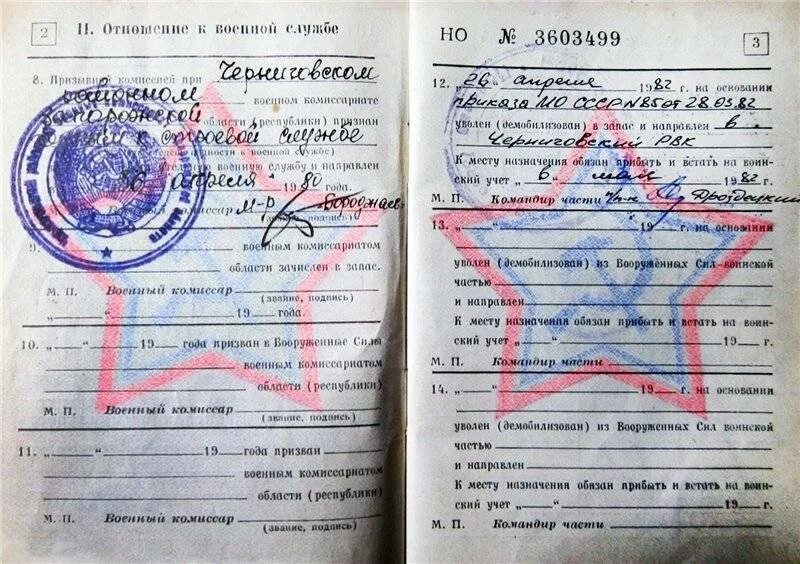 2
II. Отношение к военной службе
8. Призывной комиссией при Черниговском
районном военном комиссариате
Запорожской области (республики) признан
годным к строевой службе
военную службу и направлен
апреля 1980 года.
М-р
(подпись)
9. военным комиссариатом
области зачислен в запас.
М. П. Военный комиссар
(звание, подпись)
„ “ 19 года.
10. „ “ 19 года призван в Вооруженные Силы
военным комиссариатом
области (республики)
М. П. Военный комиссар
(звание, подпись)
11. „ “ 19 года призван
военным комиссариатом
области (республики)
М. П. Военный комиссар
(звание, подпись)
НО № 3603499
3
12. „26“ апреля 1982 г. на основании
приказа МО СССР N 85 от 28.03.82
уволен (демобилизован) в запас и направлен в
Черниговский РВК
К месту назначения обязан прибыть и встать на воин-
ский учет „6“ мая 1982 г.
М. П. Командир части п/п-к Дроздецкий
13. „ “ 19 г. на основании
уволен (демобилизован) из Вооружённых Сил воинской
частью
и направлен
К месту назначения обязан прибыть и встать на воин-
ский учет „ “ 19 г.
М. П. Командир части
14. „ “ 19 г. на основании
уволен (демобилизован) из Вооруженных Сил воинской
частью
и направлен
К месту назначения обязан прибыть и встать на воин-
ский учет „ “ 19 г.
М. П. Командир части